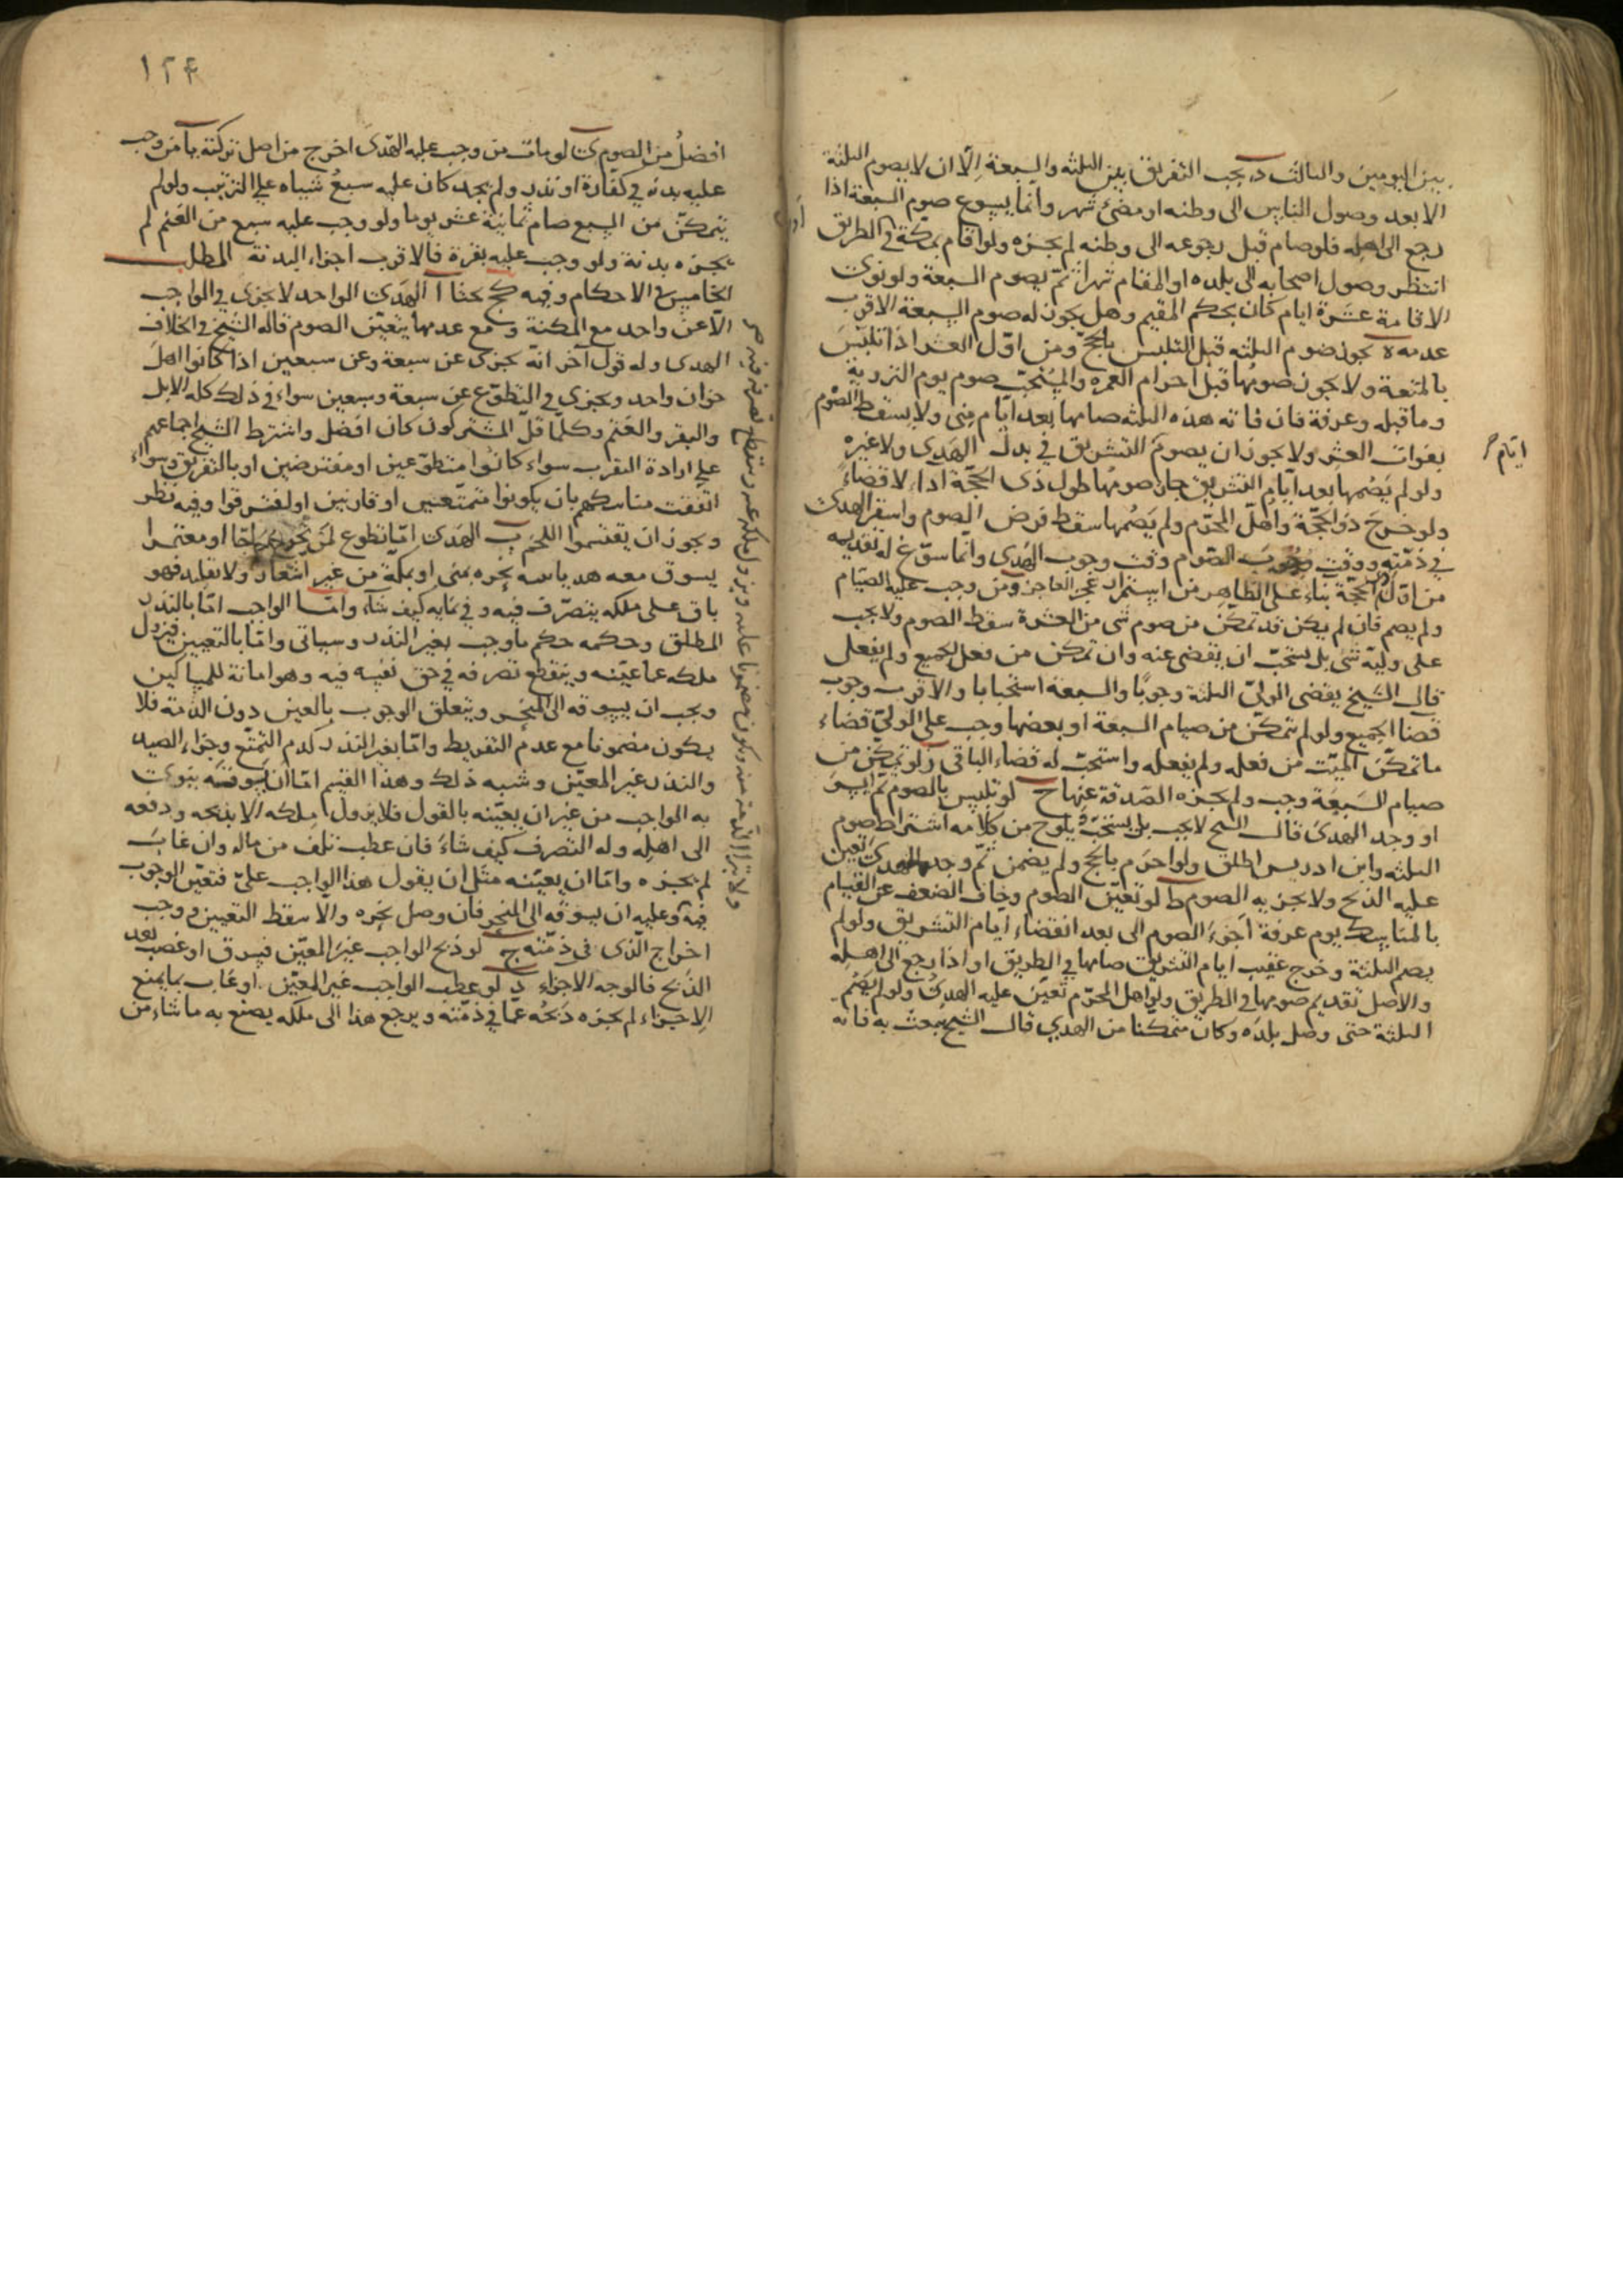 بين اليومين والثالث د يجب التفريق بين الثلثة والسبعة إلّا ان لا يصوم الثلثة
الا بعد وصول الناس الى وطنه او مضىّ شهر وانما يسوع صوم السبعة اذا
رجع الى اهله فلو صام قبل رجوعه الى وطنه لم يجزه ولو اقام بمكة في الطريق
انتظر وصول اصحابه الى بلده او المقام شهرا ثم يصوم السبعة ولو نوى
الاقامة عشرة ايام كان بحكم المقيم وهل يجوز له صوم السبعة الاقرب
عدمه ه يجوز صوم الثلثه قبل التلبس بالحجّ ومن اوّل العشر اذا تلبّس
بالمتعة ولا يجوز صومها قبل احرام العمره والمستحبّ صوم يوم التروية
وما قبله وعرفة فان فاته هذه الثلثه صامها بعد ايّام منى ولا يسقط الصوم
بفوات العشر ولا يجوز ان يصوم التشريق في بدل الهدى ولا غيره
ايّام
ولو لم يصُمها بعد ايّام التشريق جاز صومها طول ذى الحجّة اداء لا قضاءً
ولو خرج ذو الحجّة واهلّ المحرّم ولم يصُمها سقط فرض الصوم واستقر الهدى
في ذمّته ووقت وجوب الصوم وقت وجوب الهدى وانّما سوّغ له تقديمه
من اوّل الحجّة بناء على الظاهر من استمرار عجز العاجز و ومن وجب عليه الصيام
ولم يصم فان لم يكن قد تمكّن من صوم شى من العشرة سقط الصوم ولا يجب
على وليّه شى بل يستحبّ ان يقضى عنه وان تمكن من فعل الجميع ولم يفعل
قال الشيخ يقضى الولىّ الثلثة وجوبًا والسبعة استحبابا والاقرب وجوب
قضا الجميع ولو لم يتمكّن من صيام السبعة او بعضها وجب على الولىّ قضاء
ما تمكّن الميّت من فعله ولم يفعله واستحبّ له قضاء الباقى ز لو تمكّن من
صيام السبعة وجب ولم يجزه الصدقة عنها ح لو تلبس بالصوم ثم ايسر
او وجد الهدى قال الشيخ لا يجب بل يستحبّ ويلوح من كلامه اشتراط صوم
الثلثه وابن ادريس اطلق ولو احرم بالحج ولم يصم ثم وجد الهدى تعين
عليه الذبح ولا يجزيه الصوم ط لو تعيّن الصوم وخاف الضعف عن القيام
بالمناسك يوم عرفة أخّر الصوم الى بعد انقضاء ايام التشريق ولو لم
يصم الثلثة وخرج عقيب ايام التشريق صامها في الطريق او اذا رجع الى اهله
والافضل تقديم صومها في الطريق ولو اهل المحرّم تعيّن عليه الهدى ولو لم يصُم
الثلثة حتى وصل بلده وكان متمكنا من الهدي قال الشيخ يبعث به فانه
١٢٤
افضلُ من الصوم ى لو مات من وجب عليه الهَدى اخرج من اصل تركته يا من وجب
عليه بدنه في كفارة او نذر ولم يجد كان عليه سبعُ شياه على الترتيب ولو لم
يتمكّن من السبع صام ثمانية عشر يوما ولو وجب عليه سبع من الغنم لم
يجزه بدنة ولو وجب عليه بقرة فالاقرب اجزاء البدنة المطلب
الخامس في الاحكام وفيه كج بحثا ا الهَدى الواحد لا يجزى في الواجب
الّا عن واحد مع المكنة و مع عدمها يتعيّن الصوم قاله الشيخ في الخلاف
الهدى وله قول آخر انه يجزى عن سبعة وعن سبعين اذا كانوا اهل
خوان واحد ويجزي في التطوّع عن سبعة وسبعين سواء في ذلك كله الابل
والبقر والغنم وكلّما قلّ المشتركون كان افضل واشترط الشيخ اجماعهم
على ارادة التقرب سواء كانوا متطوّعين او مفترضين او بالتفريق وسواء
اتفقت مناسكهم بان يكونوا متمتّعين او قارنين او لفترقوا وفيه نظر
ويجوز ان يقتسموا اللحم ب الهَدى امّا تطوع حاجّا او معتمرا
يسوق معه هديا بنيه نحره بمنى او بمكّة من غير اشعار ولا تقليد فهو
باق على ملكه يتصرّف فيه وفي نمائه كيف شاء وامّا الواجب امّا بالنذر
المطلق وحكمه حكم ما وجب بغير النذر وسياتى وامّا بالتعيين فيزول
ملكه عما عيّنه وينقطع تصرفه في حق نفسه فيه وهو امانة للمساكين
ويجب ان يسوقه الى المنحر ويتعلق الوجوب بالعين دون الذمة فلا
يكون مضمونا مع عدم التفريط وامّا بغير النذر كدم التمتّع وجزاء الصيد
والنذر غير المعيّن وشبه ذلك وهذا القسم امّا ان يسوقه بنوى
به الواجب من غير ان يعيّنه بالقول فلا يزول ملكه الا بذبحه ودفعه
الى اهله وله التصرف كيف شاءَ فان عطب تلف من ماله وان غاب
لم يجزه وامّا ان يعيّنه مثل ان يقول هذا الواجب علىّ فتعيّن الوجوب
فيه وعليه ان يسوقه الى المنحر فان وصل نحره والا سقط التعيين و وجب
اخراج الّذى في ذمّته ج لو ذبح الواجب غير المعيّن فسرق او غصب بعد
الذبح فالوجه الاجزاء د لو عطب الواجب غير المعيّن او عاب بما يمنع
الاجزاء لم يجزه ذبحُه عمّا في ذمّته ويرجع هذا الى ملكه يصنع به ما شاء من